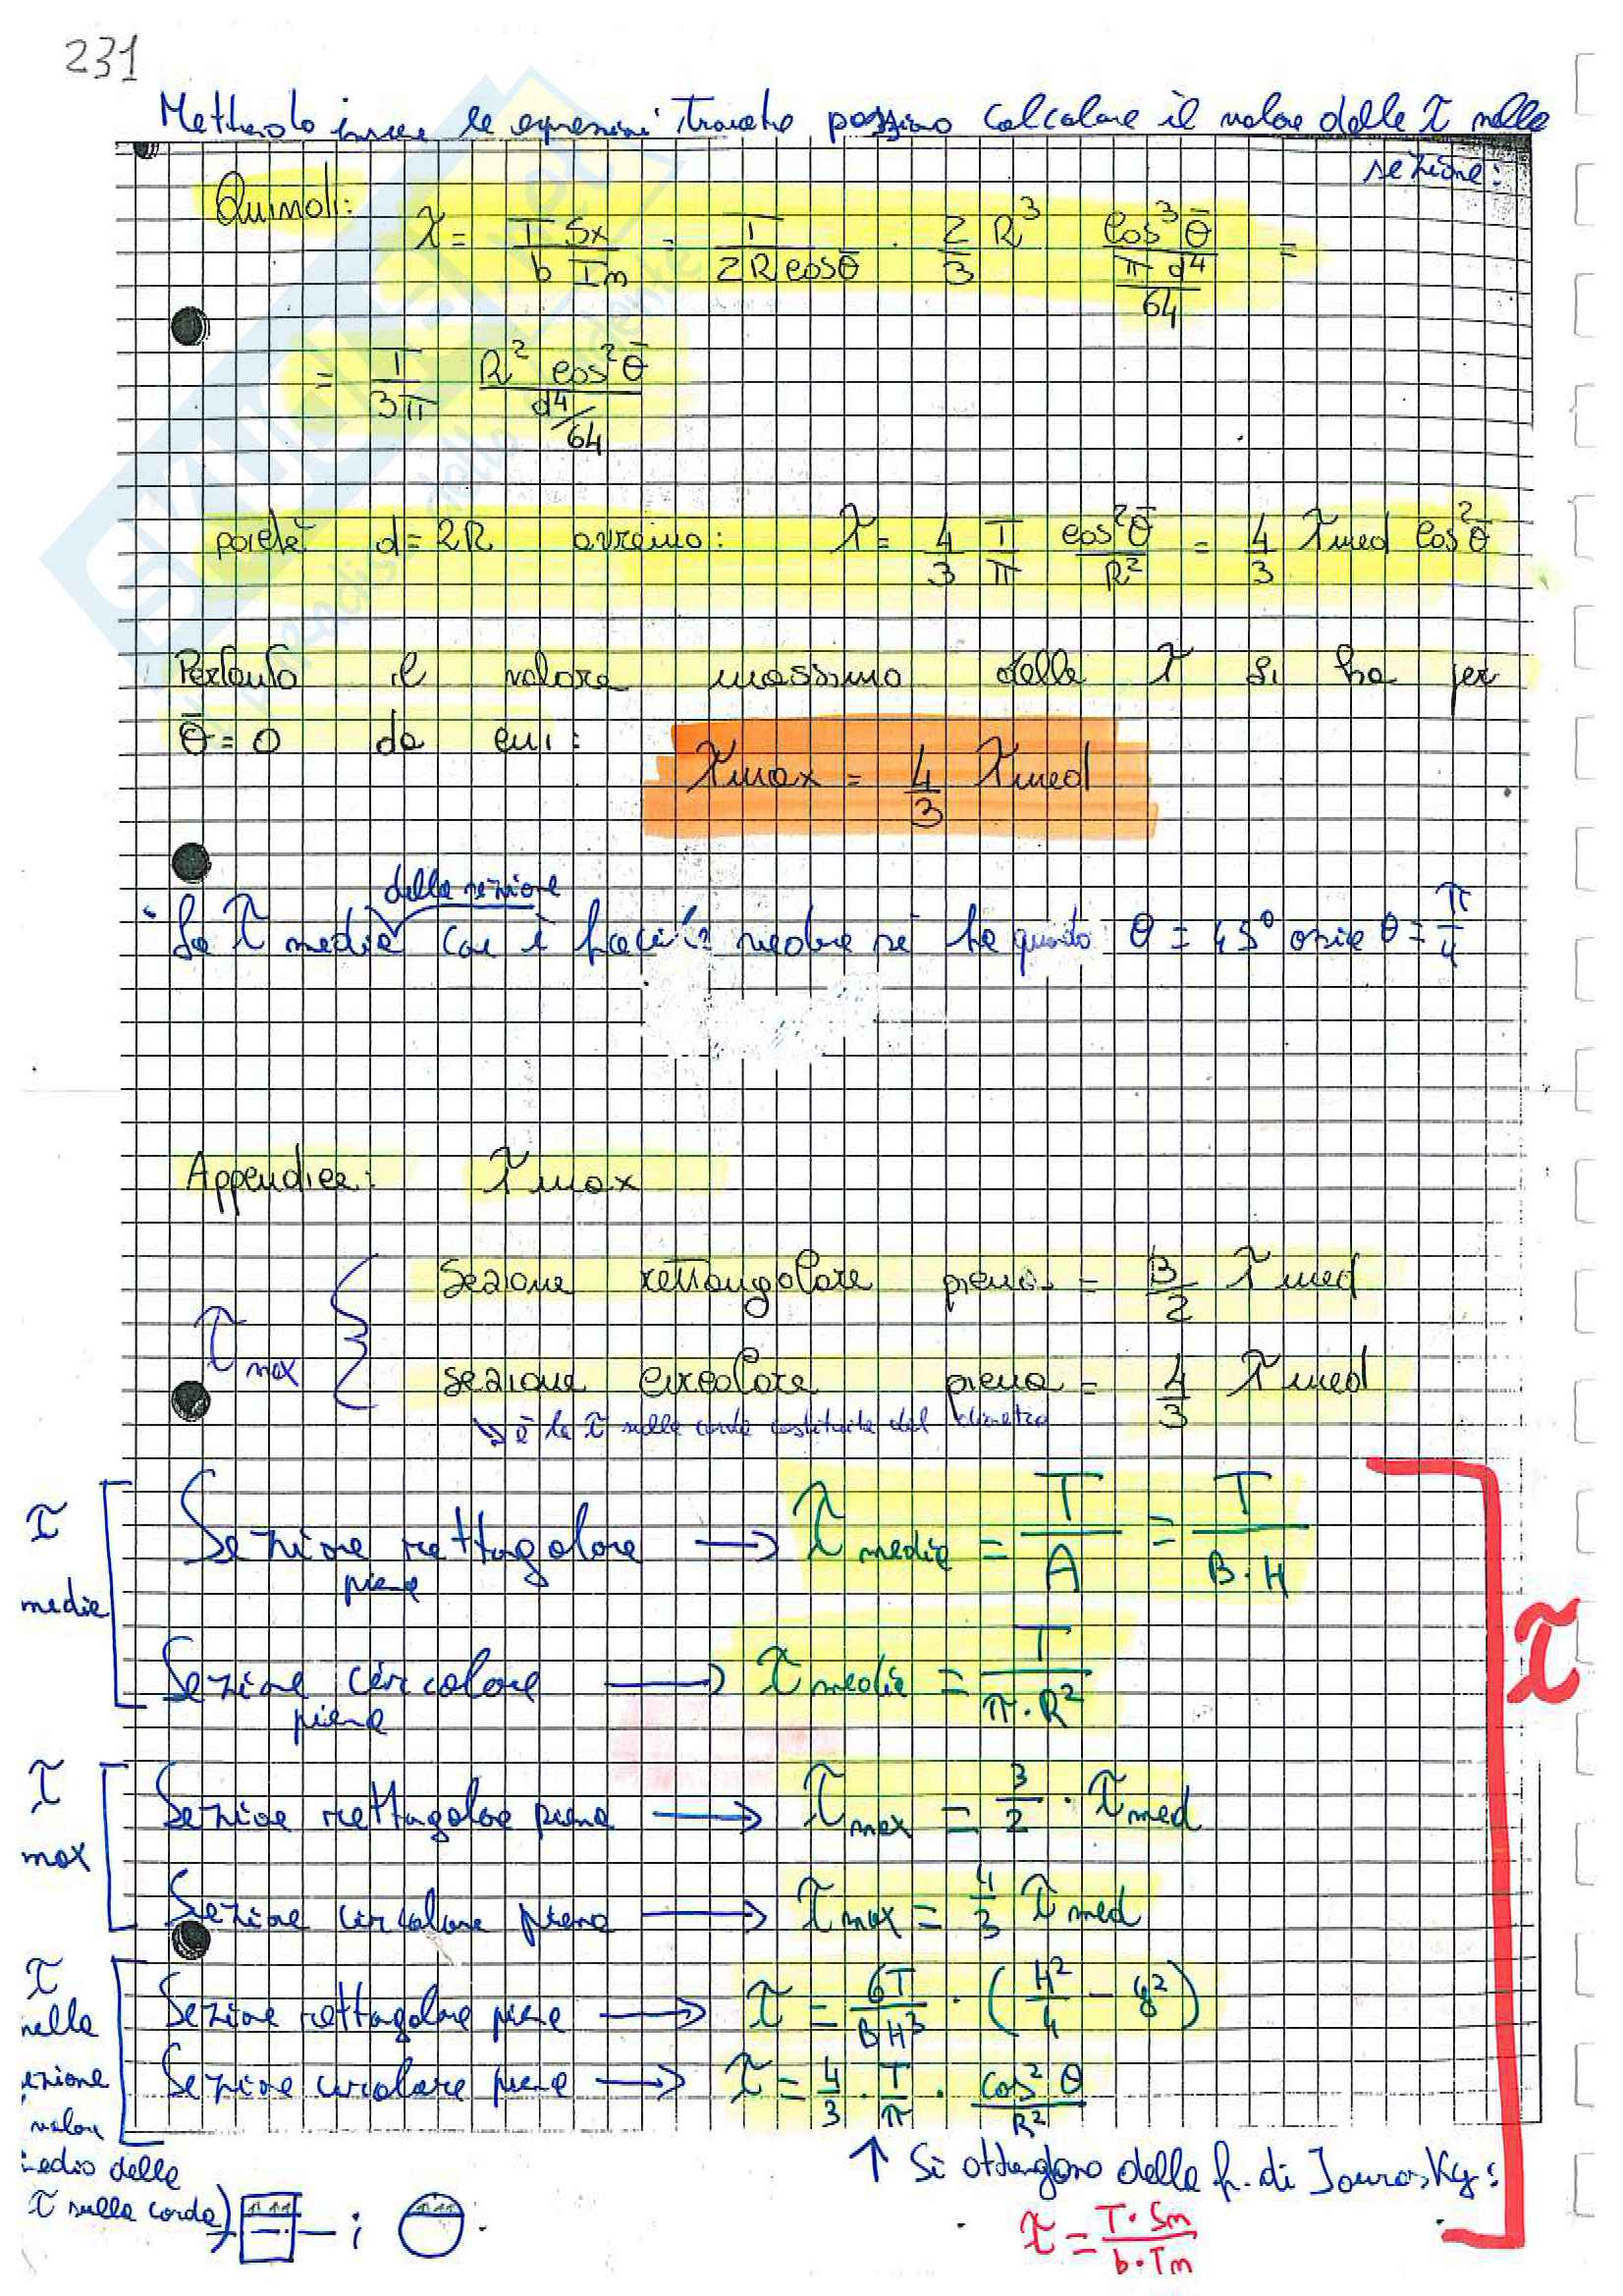 231
Mettendo insieme le espressioni trovate possiamo calcolare il valore delle τ nella
sezione:
Quindi: τ = T Sx / b In = T / 2R cos θ̄ · 2/3 R³ cos³ θ̄ / (π d⁴ / 64) =
= T / 3π R² cos² θ̄ / (d⁴/64)
poiché d = 2R avremo: τ = 4/3 T/π cos² θ̄ / R² = 4/3 τmed cos² θ̄
Pertanto il valore massimo della τ si ha per
θ̄ = 0 da cui:
τmax = 4/3 τmed
della sezione
La τ media con è facile vedere si ha quando θ = 45° ossia θ = π/4
Appendice: τmax
τmax { sezione rettangolare piena = 3/2 τmed
sezione circolare piena = 4/3 τmed
↳ è la τ sulla corda costituita dal diametro
τ media [ Sezione rettangolare piena → τmedia = T/A = T/B·H
Sezione circolare piena → τmedia = T/π·R²
τ max [ Sezione rettangolare piena → τmax = 3/2 · τmed
Sezione circolare piena → τmax = 4/3 τmed
τ nella [ Sezione rettangolare piena → τ = 6T/BH³ · (H²/4 - y²)
ezione Sezione circolare piena → τ = 4/3 · T/π · cos² θ / R²
valor
edio della
τ sulla corda) ;
↑ Si ottengono dalla f. di Jourawsky:
τ = T·Sn / b·In
τ
SKUOLA.net